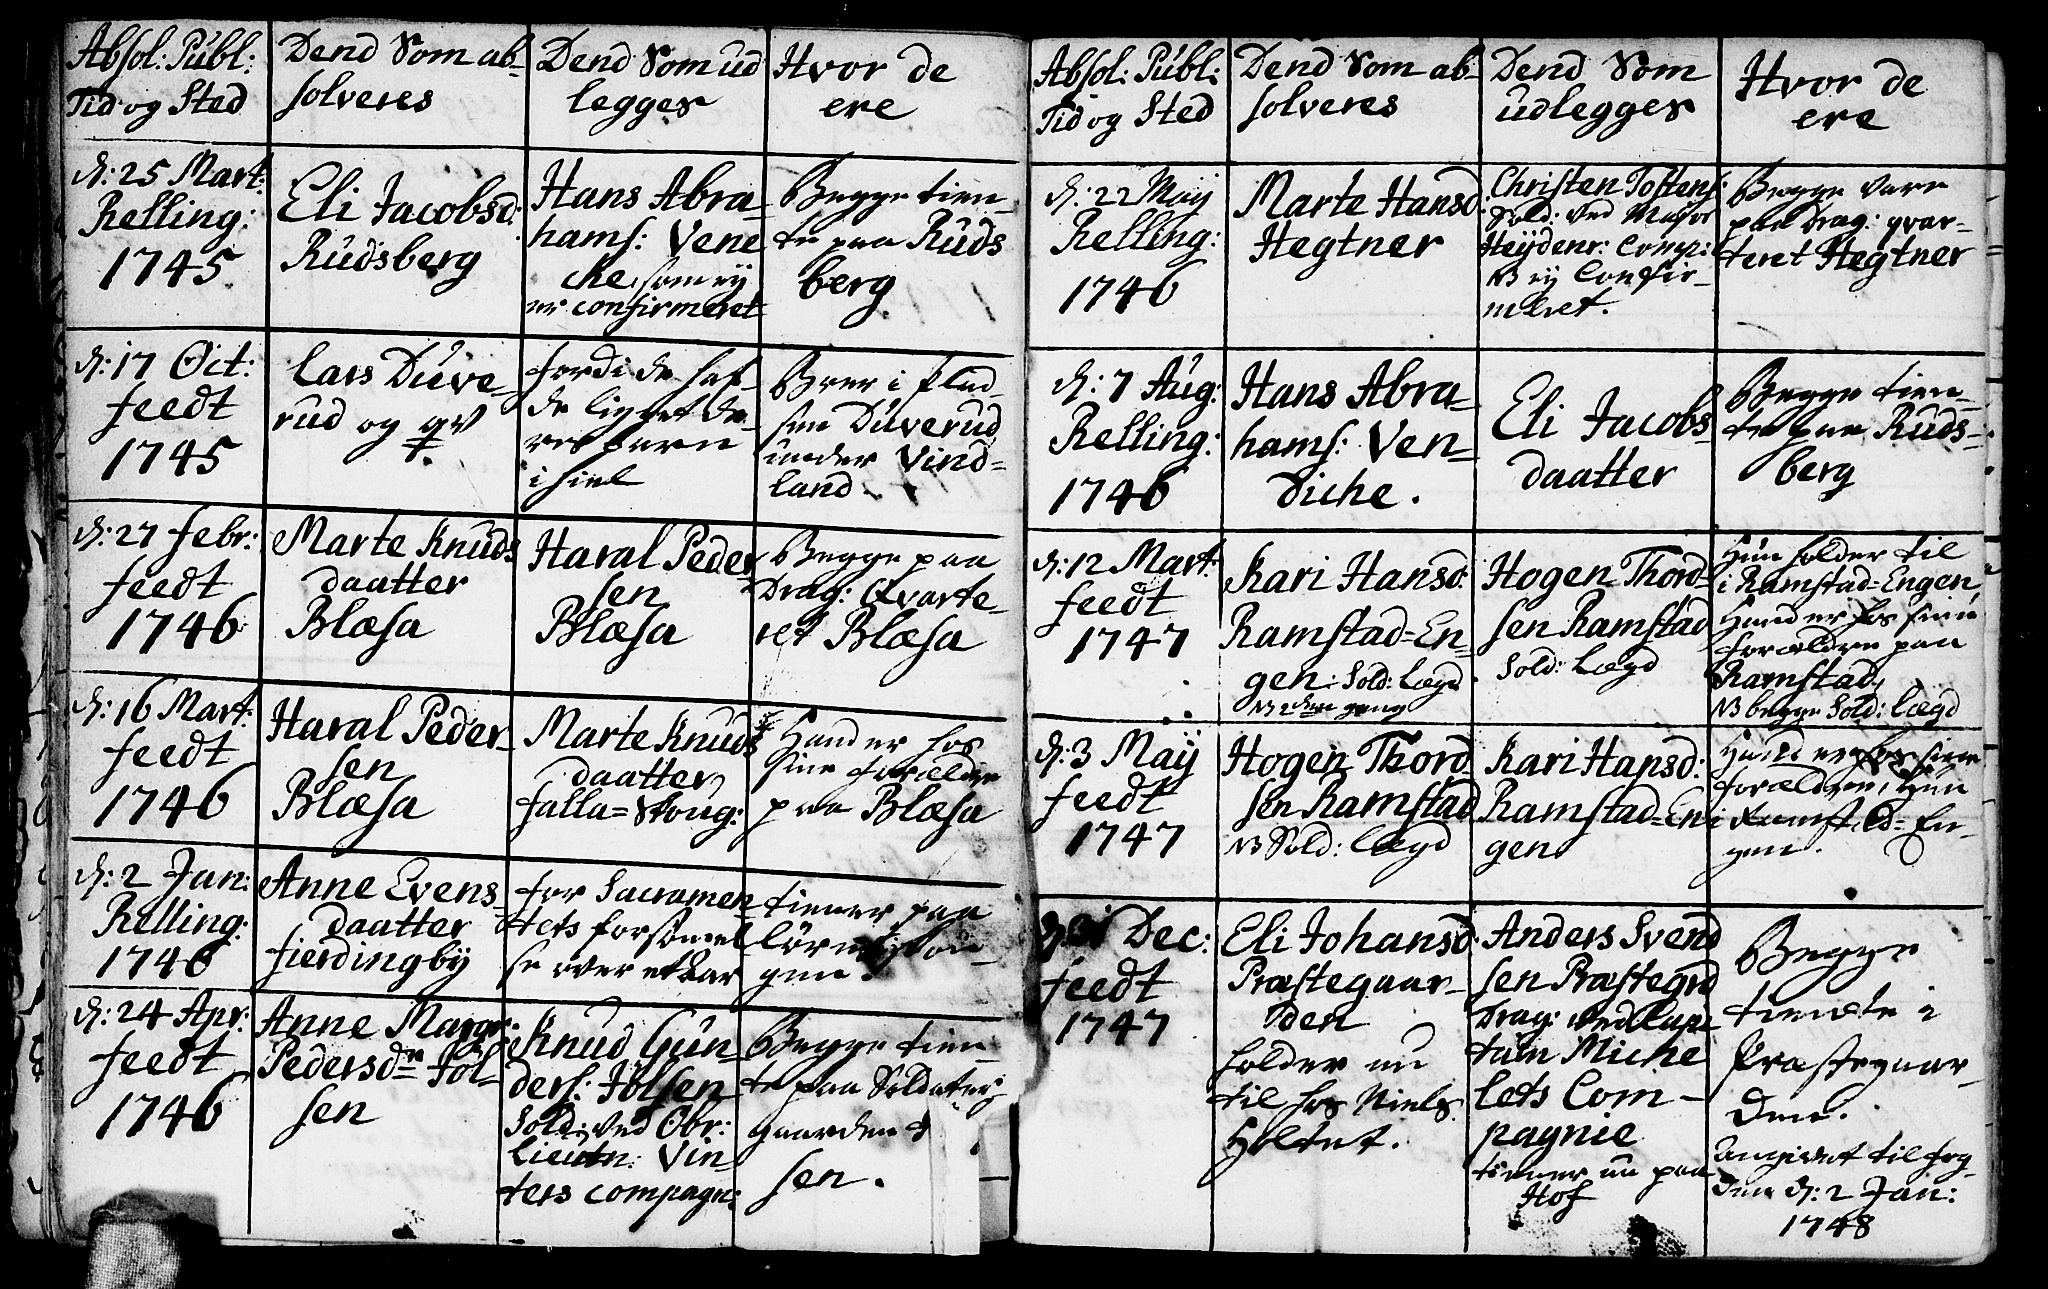 Absol: Publ:
Tid og Sted
Dend Som ab-
solveres
Dend Som ud
legges
Hvor de
ere
d: 25 Mart:
Relling:
1745
Eli Jacobsd:
Rudsberg
Hans Abra-
hams: Vene
che, som ey
er confirmeret
Begge tien-
te paa Ruds
berg
d: 17 Oct:
feedt
1745
Lars Duve-
rud og qv
fordi de haf-
de ligget de-
res barn
ihiel
Boer i Plad-
sen Duverud
under Vind-
land.
d: 27 Febr:
feedt
1746
Marte Knuds
daatter
Blæsa
Haral Peder
sen
Blæsa
Begge paa
Drag: Qvarte-
ret Blæsa
d: 16 Mart:
feedt
1746
Haral Peder-
sen
Blæsa
Marte Knuds
daatter
Falla=Skoug:
Hand er hos
sine forældre
paa Blæsa
d: 2 Jan:
Relling:
1746
Anne Evens-
daatter
Fierdingby
for Sacramen-
tets forsømel
se over et aar
tiener paa
gen.
d: 24 Apr:
feedt
1746
Anne Margr:
Pedersdr Jöl-
sen
Knud Gun-
ders: Jölsen
Sold: ved Obr:
Lieutn: Vin-
ters compagn:
Begge tien-
te paa Soldater
gaarden
sen.
Absol: Publ:
Tid og Sted
Dend Som ab-
solveres
Dend Som
udlegges
Hvor de
ere
d: 22 Maÿ
Relling:
1746
Marte Hansd
Hegtner
Christen Tostens:
Sold: ved Major
Heÿdenr: Comp:
NB ey Confir-
meret.
Begge vare
paa Drag: qvar-
teret Hegtner
d: 7 Aug:
Relling:
1746
Hans Abra-
hams: Ven-
diche.
Eli Jacobs
daatter
Begge tien-
te paa Ruds-
berg
d: 12 Mart:
feedt
1747
Kari Hansd:
Ramstad=En-
gen: Sold: Lægd
NB 2den gang
Hogen Thord-
sen Ramstad
Sold: Lægd
Hun holder til
i Ramstad=Engen,
Hand er hos sine
forældre paa
Ramstad,
NB begge Sold: Lægd
d: 3 Maÿ
feedt
1747
Hogen Thord
sen Ramstad
NB Sold: Lægd
Kari Hansd:
Ramstad=En
gen
Hand er hos sine
forældre, Hun
i Ramstad=En-
gen.
Dec:
feedt
1747
Eli Johansd
Præstegaar-
den
holder nu
til hos Niels
Holtet.
Anders Svend
sen Præstegrd
Drag: ved Cape
tain Miche
lets Com-
pagnie
tiener nu paa
Hof
Begge
tiente i
Præstegaar-
den.
Angivet til fog-
den d: 2 Jan:
1748